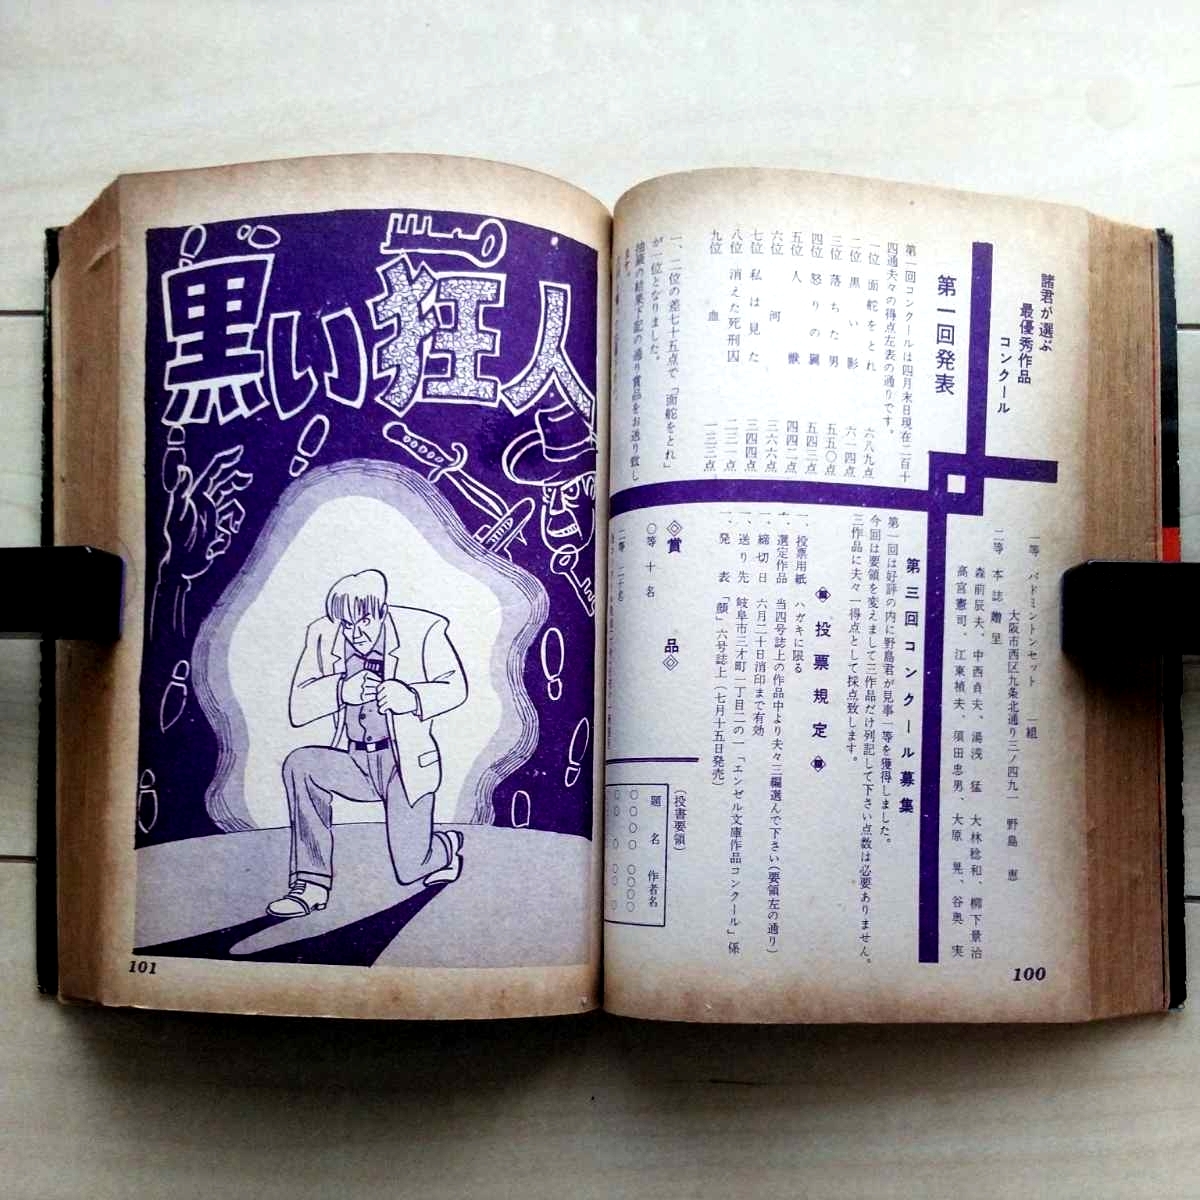 諸君が選ぶ
最優秀作品
コンクール
第一回発表
第一回コンクールは四月末日現在二百十
四通夫々の得点左表の通りです。
一位 面舵をとれ 六八九点
二位 黒い影 六一四点
三位 落ちた男 五五〇点
四位 怒りの翼 五四三点
五位 人獣 四四二点
六位 河 三六六点
七位 私は見た 三四四点
八位 消えた死刑囚 二三一点
九位 血 一三三点
一、二位の差七十五点で「面舵をとれ」
が一位となりました。
抽籤の結果下記の通り賞品をお送り致し
一等 バドミントンセット 一組
大阪市西区九条北通り三ノ四九一 野島 恵
二等 本誌贈呈
森前辰夫、中西貞夫、湯浅 猛 大林稔和、柳下景治
高宮憲司、江東楨夫、須田忠男、大原 晃、谷奥 実
第三回コンクール募集
第一回は好評の内に野島君が見事一等を獲得しました。
今回は要領を変えまして三作品だけ列記して下さい点数は必要ありません。
三作品に夫々一得点として採点致します。
投票規定
一、投票用紙 ハガキに限る
一、選定作品 当四号誌上の作品中より夫々三編選んで下さい(要領左の通り)
一、締切日 六月二十日消印まで有効
一、送り先 岐阜市三才町一丁目二の一「エンゼル文庫作品コンクール」係
一、発表 「顔」六号誌上(七月十五日発売)
◇賞品◇
〇等 十名
二等 二十名
(投書要領)
題名 作者名
〇〇〇〇 〇〇〇〇
100
黒い狂人
101